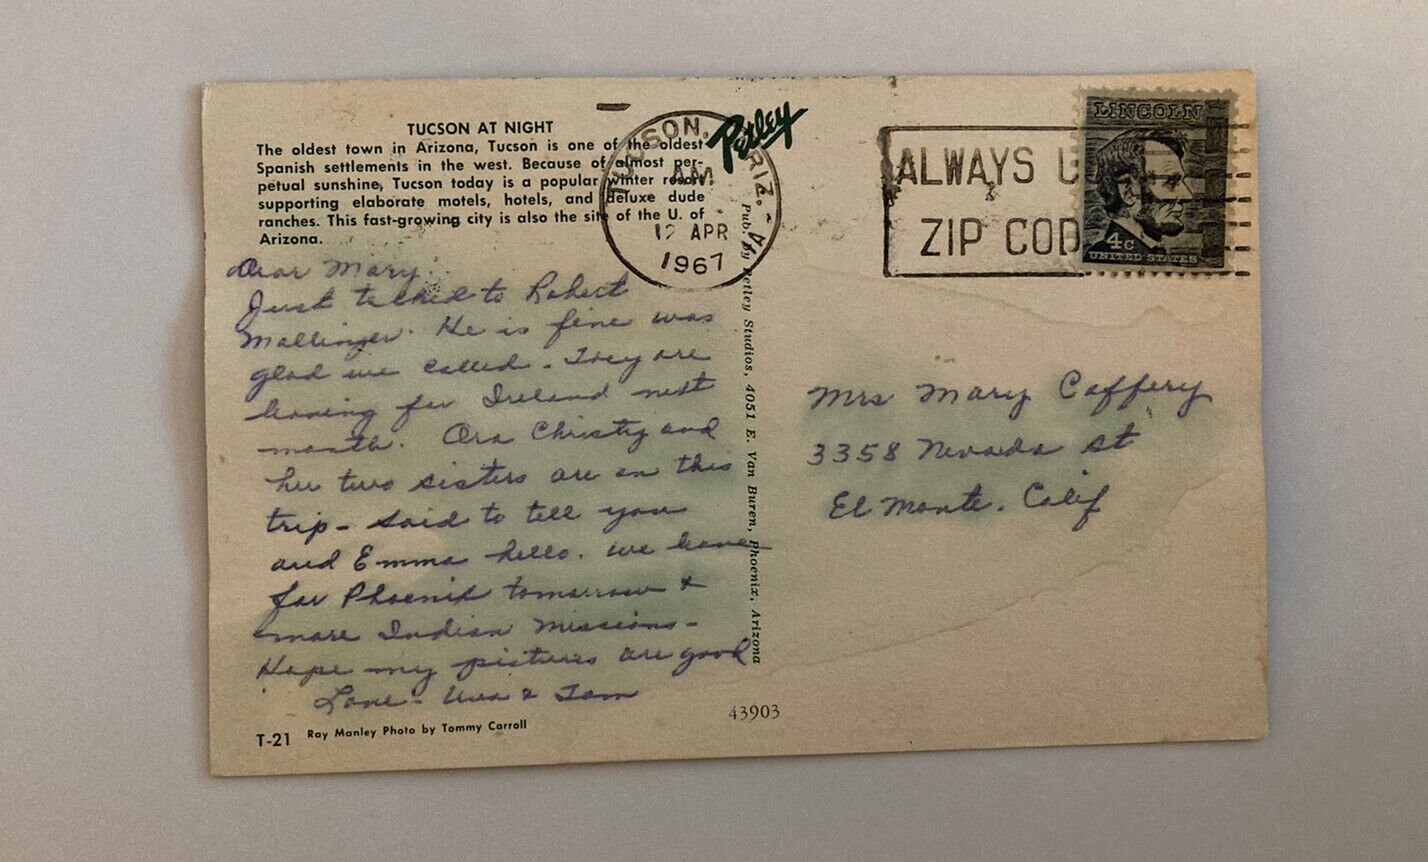 TUCSON AT NIGHT
The oldest town in Arizona, Tucson is one of the oldest
Spanish settlements in the west. Because of almost per-
petual sunshine, Tucson today is a popular winter resort
supporting elaborate motels, hotels, and deluxe dude
ranches. This fast-growing city is also the site of the U. of
Arizona.
Dear Mary:
Just talked to Robert
Mallinger. He is fine was
glad we called - They are
leaving for Ireland next
month. Ora Christy and
her two sisters are on this
trip - said to tell you
and Emma hello. We leave
for Phoenix tomorrow &
more Indian Missions -
Hope my pictures are good
Love - & Tom
T-21 Ray Manley Photo by Tommy Carroll
TUCSON, ARIZ. - A
AM
12 APR
1967
Petley
Pub. by Petley Studios, 4051 E. Van Buren, Phoenix, Arizona
43903
ALWAYS U
ZIP COD
LINCOLN
4c
UNITED STATES
Mrs Mary Caffery
3358 Nevada St
El Monte. Calif